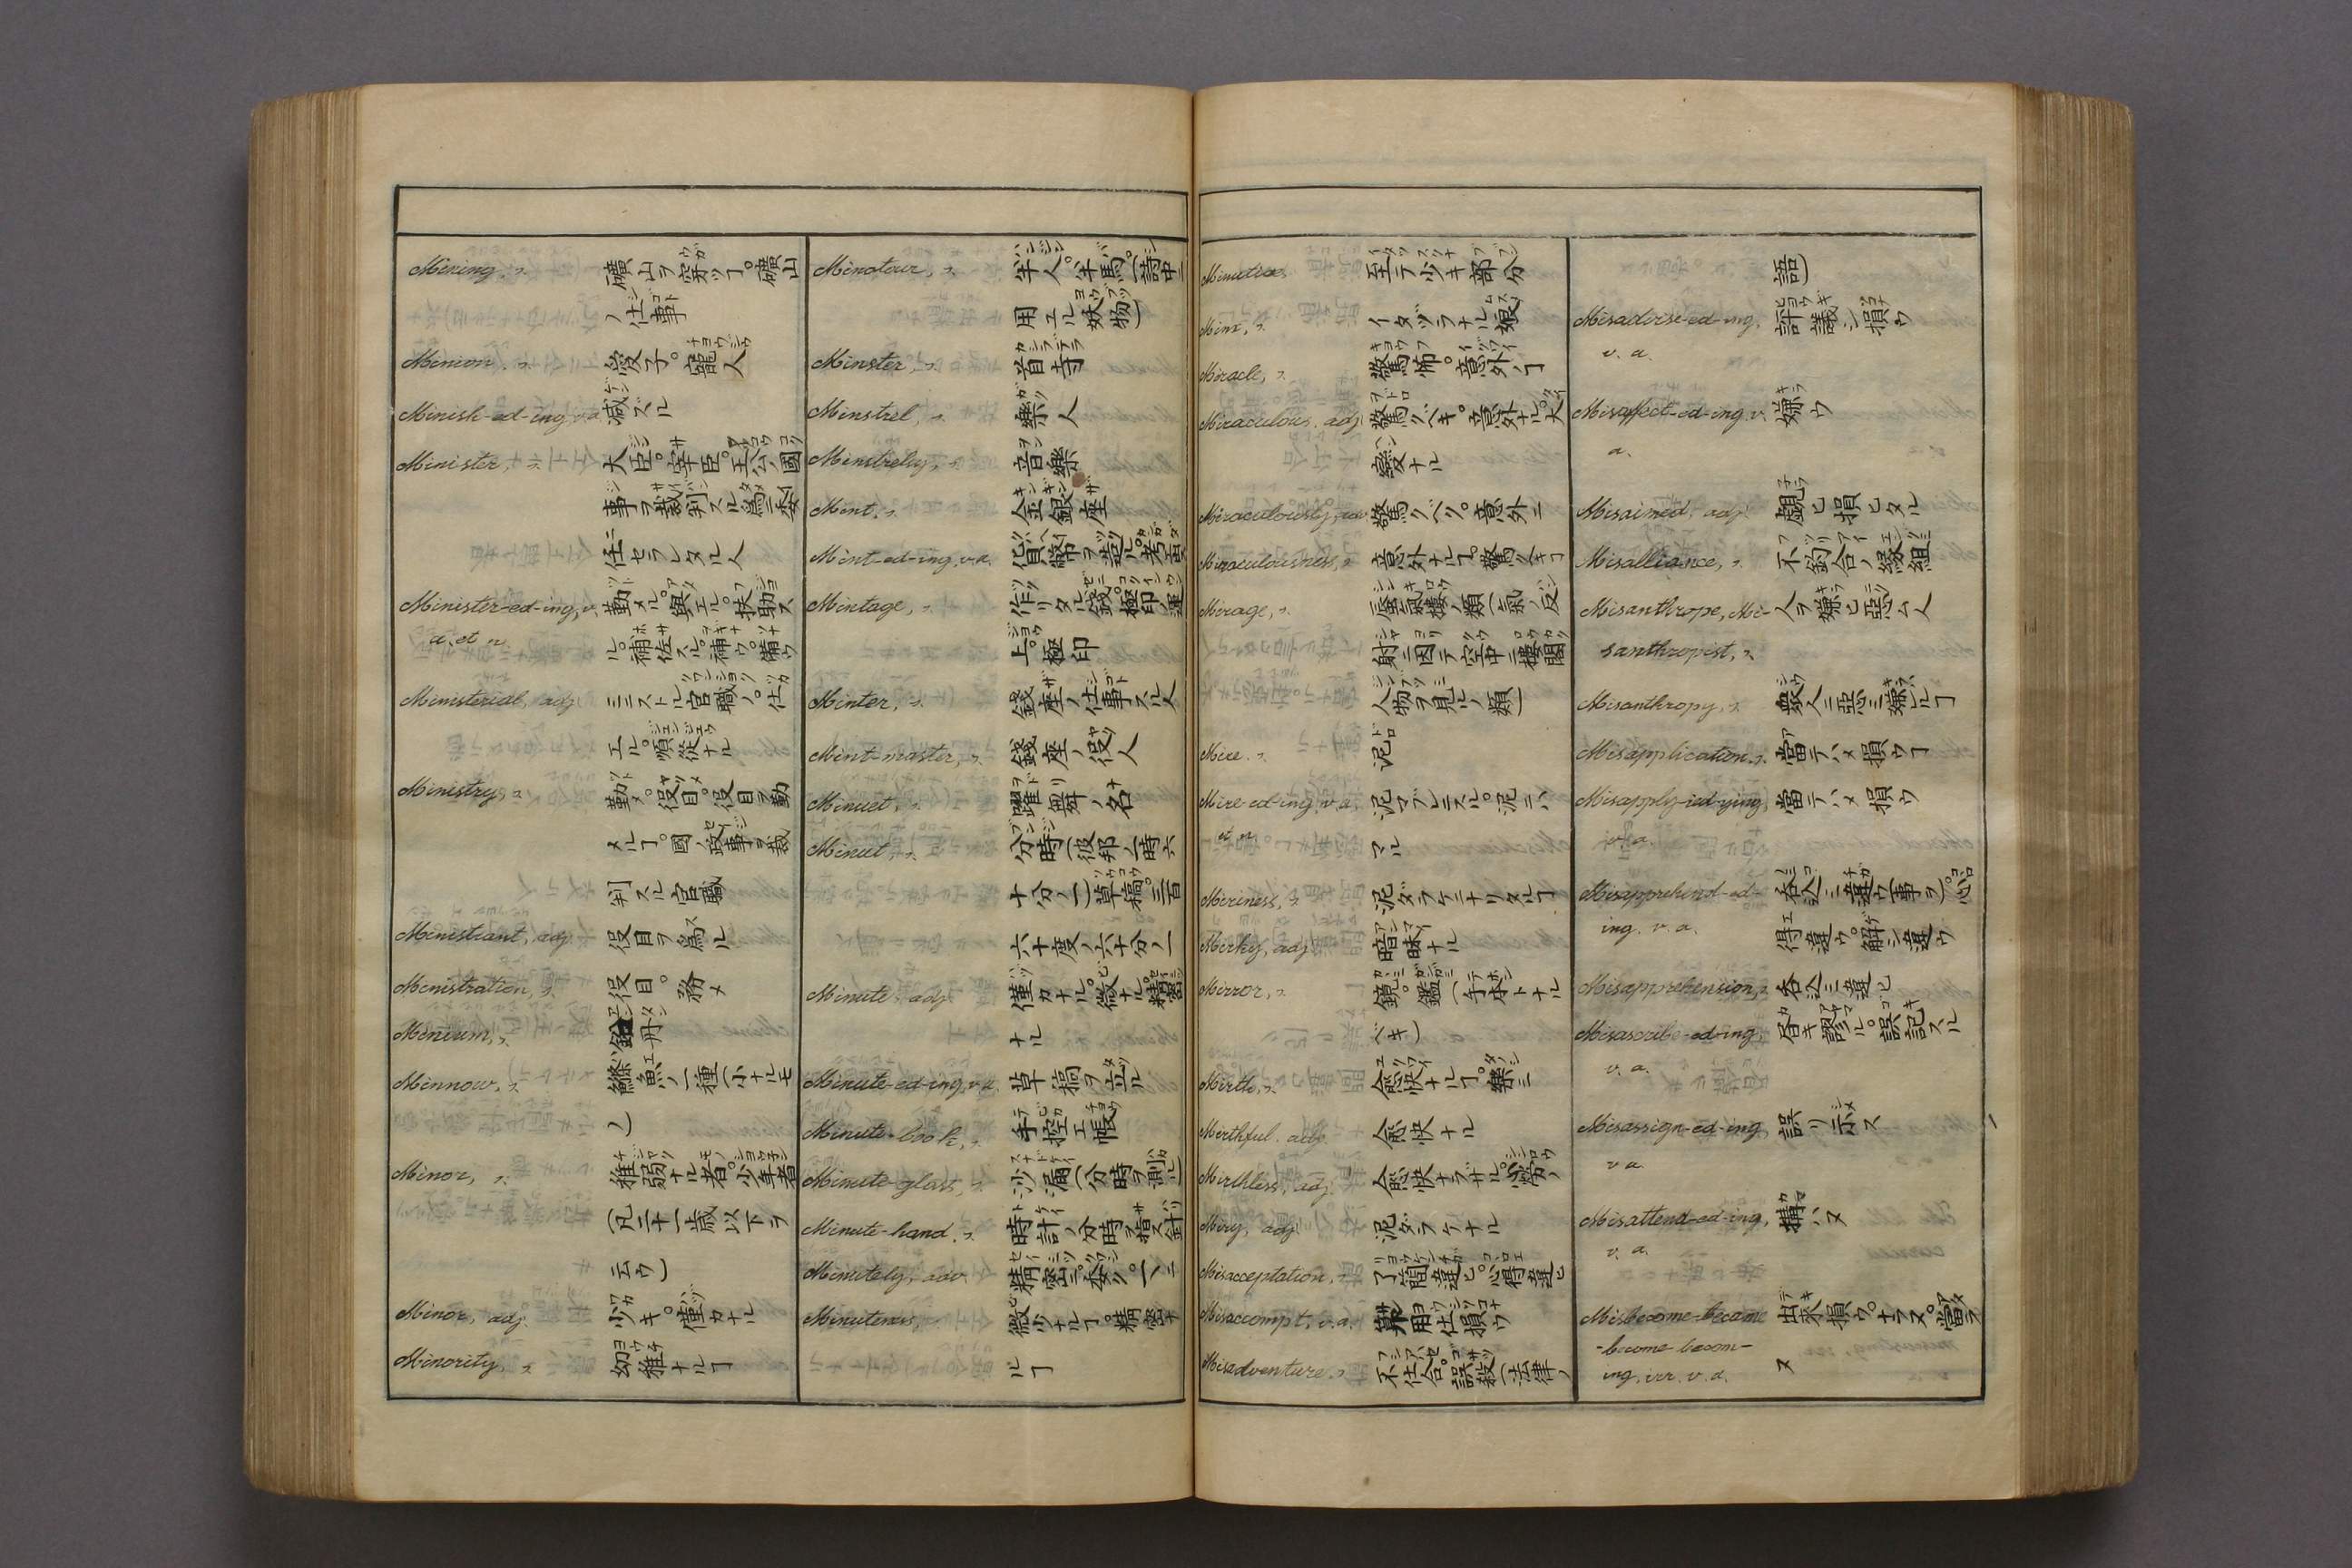 Mining, n. 礦山ヲ穿ツヿ。礦山
ノ仕事
Minion, n. 愛子。寵人
Minish-ed-ing, v.a. 減ズル
Minister, n. 大臣。宰臣。王公ノ國
事ヲ裁判スル爲ニ委
任セラレタル人
Minister-ed-ing, v. 勤メル。與エル。扶助ス
a. et n. ル。補佐スル。補ウ。備ウ
Ministerial, adj. ミニストル官職ノ。仕
エル。順從ナル
Ministry, n. 勤メ。役目。役目ヲ勤
メルヿ。國ノ政事ヲ裁
判スル官職
Ministrant, adj. 役目ヲ爲ル
Ministration, n. 役目。務メ
Minium, n. 鉛丹
Minnow, n. 鰷魚ノ一種(小ナルモ
ノ)
Minor, n. 稚弱ナル者。少年者
(凡二十一歳以下ヲ
云ウ)
Minor, adj. 少キ。僅カナル
Minority, n. 幼稚ナルヿ
Minotaur, n. 半牛人。半馬(詩中ニ
用エル妖物)
Minster, n. 首寺
Minstrel, n. 樂人
Minstrelsy, n. 音樂
Mint, n. 金銀座
Mint-ed-ing, v.a. 貨幣ヲ製ル。考出ス
Mintage, n. 作リタル錢。極印ノ運
上。極印
Minter, n. 錢座ノ仕事スル人
Mint-master, n. 錢座ノ役人
Minuet, n. 躍舞ノ名
Minut, n. 分時(彼邦ノ一時六
十分ノ一)草稿。三百
六十度ノ六十分ノ一
Minute, adj. 僅カナル。微ナル。精密
ナル
Minute-ed-ing, v.a. 草稿ヲ立ル
Minute-book, n. 手控エ帳
Minute-glass, n. 沙漏(分時ヲ測ル)
Minute-hand, n. 時計ノ分時ヲ指ス針
Minutely, adv. 精密ニ。委ク。一々ニ
Minuteness, n. 微少ナルヿ。精密ナ
ルヿ
Minutiæ, 至テ少キ部分
Minx, n. イタヅラナル娘
Miracle, n. 驚怖。意外ノヿ
Miraculous, adj. 驚クベキ。意外ナル。大
變ナル
Miraculously, adv. 驚クベク。意外ニ
Miraculousness, n. 意外ナルヿ。驚クベキヿ
Mirage, n. 蜃氣樓ノ類(氣ノ反
射ニ因テ空中ニ樓閣
人物ヲ見ルノ類)
Mire, n. 泥
Mire-ed-ing, v.a. 泥マブレニスル。泥ニハ
et n. マル
Miriness, n. 泥ダラケニナリタルヿ
Mirky, adj. 暗昧ナル
Mirror, n. 鏡。鑑(手本トナル
ベキ)
Mirth, n. 愈快ナルヿ。樂ミ
Mirthful, adj. 愈快ナル
Mirthless, adj. 愈快ナラザル。心勞ノ
Miry, adj. 泥ダラケナル
Misacceptation, n. 了簡違ヒ。心得違ヒ
Misaccompt, v.a. 算用仕損ウ
Misadventure, n. 不仕合。誤殺(法律ノ
語)
Misadvise-ed-ing, 評議シ損ウ
v. a.
Misaffect-ed-ing, v. 嫌ウ
a.
Misaimed, adj. 覷ヒ損ヒタル
Misalliance, n. 不釣合ノ緣組
Misanthrope, Mi- 人ヲ嫌ヒ惡ム人
santhropist, n.
Misanthropy, n. 衆人ニ惡ミ嫌ハルヿ
Misapplication, n. 當テハメ損ウヿ
Misapply-ied-ying, 當テハメ損ウ
v. a.
Misapprehend-ed- 呑込ミ違ウ(事ヲ)心
ing. v. a. 得違ウ。解シ違ウ
Misapprehension, n. 呑込ミ違ヒ
Misascribe-ed-ing, 書キ謬ル。誤記スル
v. a.
Misassign-ed-ing 誤リ示ス
v a.
Misattend-ed-ing, 搆ハヌ
v. a.
Misbecome-became 出來損ウ。ナラヌ。當ラ
-become-becom- ヌ
ing, irr. v. a.